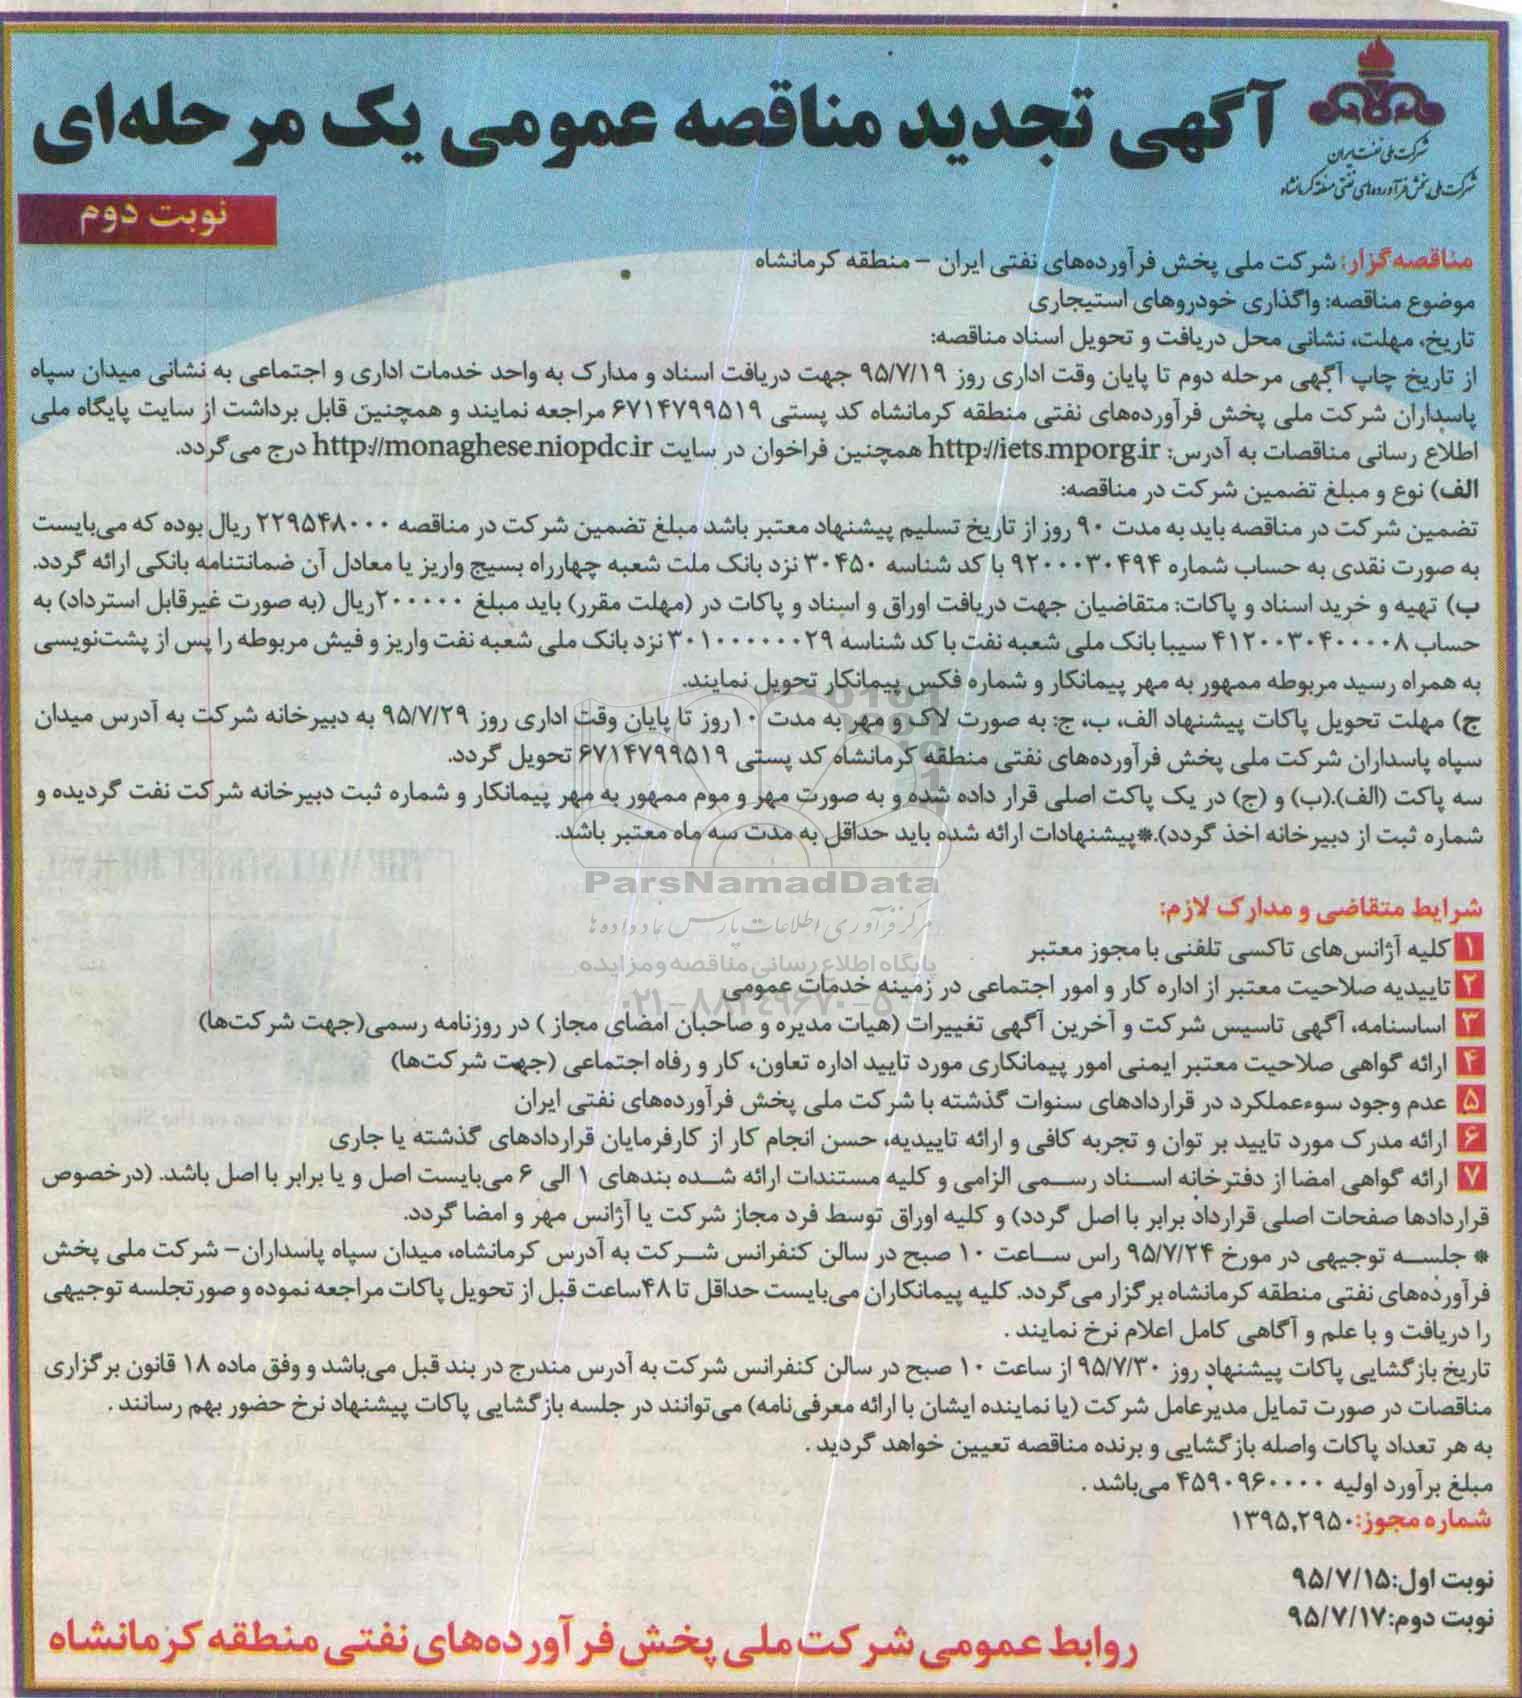 آگهی تجدید مناقصه عمومی یک مرحله‌ای
شرکت ملی نفت ایران
شرکت ملی پخش فرآورده‌های نفتی منطقه کرمانشاه
نوبت دوم
مناقصه‌گزار: شرکت ملی پخش فرآورده‌های نفتی ایران – منطقه کرمانشاه
موضوع مناقصه: واگذاری خودروهای استیجاری
تاریخ، مهلت، نشانی محل دریافت و تحویل اسناد مناقصه:
از تاریخ چاپ آگهی مرحله دوم تا پایان وقت اداری روز ۹۵/۷/۱۹ جهت دریافت اسناد و مدارک به واحد خدمات اداری و اجتماعی به نشانی میدان سپاه
پاسداران شرکت ملی پخش فرآورده‌های نفتی منطقه کرمانشاه کد پستی ۶۷۱۴۷۹۹۵۱۹ مراجعه نمایند و همچنین قابل برداشت از سایت پایگاه ملی
اطلاع رسانی مناقصات به آدرس: http://iets.mporg.ir همچنین فراخوان در سایت http://monaghese.niopdc.ir درج می‌گردد.
الف) نوع و مبلغ تضمین شرکت در مناقصه:
تضمین شرکت در مناقصه باید به مدت ۹۰ روز از تاریخ تسلیم پیشنهاد معتبر باشد مبلغ تضمین شرکت در مناقصه ۲۲۹۵۴۸۰۰۰ ریال بوده که می‌بایست
به صورت نقدی به حساب شماره ۹۲۰۰۰۳۰۴۹۴ با کد شناسه ۳۰۴۵۰ نزد بانک ملت شعبه چهارراه بسیج واریز یا معادل آن ضمانتنامه بانکی ارائه گردد.
ب) تهیه و خرید اسناد و پاکات: متقاضیان جهت دریافت اوراق و اسناد و پاکات در (مهلت مقرر) باید مبلغ ۲۰۰۰۰۰ریال (به صورت غیرقابل استرداد) به
حساب ۴۱۲۰۰۳۰۴۰۰۰۰۸ سیبا بانک ملی شعبه نفت با کد شناسه ۳۰۱۰۰۰۰۰۰۰۲۹ نزد بانک ملی شعبه نفت واریز و فیش مربوطه را پس از پشت‌نویسی
به همراه رسید مربوطه ممهور به مهر پیمانکار و شماره فکس پیمانکار تحویل نمایند.
ج) مهلت تحویل پاکات پیشنهاد الف، ب، ج: به صورت لاک و مهر به مدت ۱۰روز تا پایان وقت اداری روز ۹۵/۷/۲۹ به دبیرخانه شرکت به آدرس میدان
سپاه پاسداران شرکت ملی پخش فرآورده‌های نفتی منطقه کرمانشاه کد پستی ۶۷۱۴۷۹۹۵۱۹ تحویل گردد.
سه پاکت (الف).(ب) و (ج) در یک پاکت اصلی قرار داده شده و به صورت مهر و موم ممهور به مهر پیمانکار و شماره ثبت دبیرخانه شرکت نفت گردیده و
شماره ثبت از دبیرخانه اخذ گردد).*پیشنهادات ارائه شده باید حداقل به مدت سه ماه معتبر باشد.
ParsNamadData
مرکز فرآوری اطلاعات پارس نماد داده ها
شرایط متقاضی و مدارک لازم:
۱ کلیه آژانس‌های تاکسی تلفنی با مجوز معتبر
پایگاه اطلاع رسانی مناقصه و مزایده
۲ تاییدیه صلاحیت معتبر از اداره کار و امور اجتماعی در زمینه خدمات عمومی
۰۲۱-۸۸۳۴۹۶۷۰-۵
۳ اساسنامه، آگهی تاسیس شرکت و آخرین آگهی تغییرات (هیات مدیره و صاحبان امضای مجاز ) در روزنامه رسمی(جهت شرکت‌ها)
۴ ارائه گواهی صلاحیت معتبر ایمنی امور پیمانکاری مورد تایید اداره تعاون، کار و رفاه اجتماعی (جهت شرکت‌ها)
۵ عدم وجود سوءعملکرد در قراردادهای سنوات گذشته با شرکت ملی پخش فرآورده‌های نفتی ایران
۶ ارائه مدرک مورد تایید بر توان و تجربه کافی و ارائه تاییدیه، حسن انجام کار از کارفرمایان قراردادهای گذشته یا جاری
۷ ارائه گواهی امضا از دفترخانه اسناد رسمی الزامی و کلیه مستندات ارائه شده بندهای ۱ الی ۶ می‌بایست اصل و یا برابر با اصل باشد. (درخصوص
قراردادها صفحات اصلی قرارداد برابر با اصل گردد) و کلیه اوراق توسط فرد مجاز شرکت یا آژانس مهر و امضا گردد.
* جلسه توجیهی در مورخ ۹۵/۷/۲۴ راس ساعت ۱۰ صبح در سالن کنفرانس شرکت به آدرس کرمانشاه، میدان سپاه پاسداران– شرکت ملی پخش
فرآورده‌های نفتی منطقه کرمانشاه برگزار می‌گردد. کلیه پیمانکاران می‌بایست حداقل تا ۴۸ساعت قبل از تحویل پاکات مراجعه نموده و صورتجلسه توجیهی
را دریافت و با علم و آگاهی کامل اعلام نرخ نمایند .
تاریخ بازگشایی پاکات پیشنهاد روز ۹۵/۷/۳۰ از ساعت ۱۰ صبح در سالن کنفرانس شرکت به آدرس مندرج در بند قبل می‌باشد و وفق ماده ۱۸ قانون برگزاری
مناقصات در صورت تمایل مدیرعامل شرکت (یا نماینده ایشان با ارائه معرفی‌نامه) می‌توانند در جلسه بازگشایی پاکات پیشنهاد نرخ حضور بهم رسانند .
به هر تعداد پاکات واصله بازگشایی و برنده مناقصه تعیین خواهد گردید .
مبلغ برآورد اولیه ۴۵۹۰۹۶۰۰۰۰ می‌باشد .
شماره مجوز:۱۳۹۵,۲۹۵۰
نوبت اول:۹۵/۷/۱۵
نوبت دوم:۹۵/۷/۱۷
روابط عمومی شرکت ملی پخش فرآورده‌های نفتی منطقه کرمانشاه